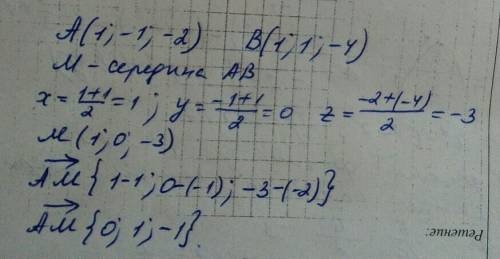 A(1; -1; -2)   B(1; 1; -4)
M - середина AB
x = \frac{1+1}{2} = 1; y = \frac{-1+1}{2} = 0   z = \frac{-2+(-4)}{2} = -3
M(1; 0; -3)
\overrightarrow{AM}{1-1; 0-(-1); -3-(-2)}
\overrightarrow{AM}{0; 1; -1}.
Решение: